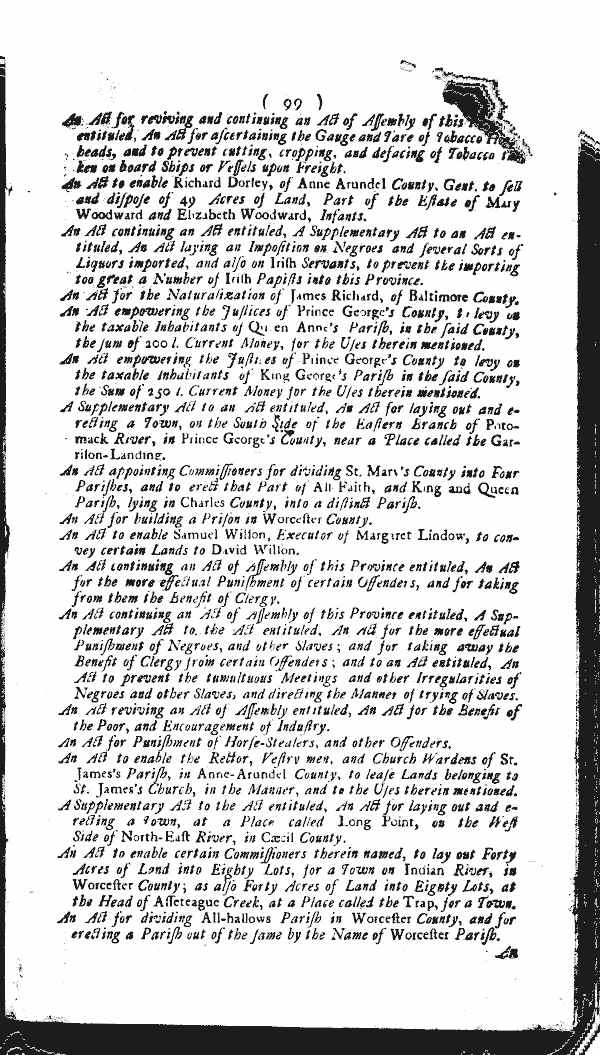 ( 99 )
An Act for reviving and continuing an Act of Aſſembly of this
entituled, An Act for aſcertaining the Gauge and Tare of Tobacco
heads, and to prevent cutting, cropping, and defacing of Tobacco
ken on board Ships or Veſſels upon Freight.
An Act to enable Richard Dorley, of Anne Arundel County, Gent. to ſell
and diſpoſe of 49 Acres of Land, Part of the Eſtate of Mary
Woodward and Elizabeth Woodward, Infants.
An Act continuing an Act entituled, A Supplementary Act to an Act en-
tituled, An Act laying an Impoſition on Negroes and ſeveral Sorts of
Liquors imported, and alſo on Iriſh Servants, to prevent the importing
too great a Number of Iriſh Papiſts into this Province.
An Act for the Naturalization of James Richard, of Baltimore County.
An Act empowering the Juſtices of Prince George's County, to levy on
the taxable Inhabitants of Queen Anne's Pariſh, in the ſaid County,
the ſum of 200 l. Current Money, for the Uſes therein mentioned.
An Act empowering the Juſtices of Prince George's County to levy on
the taxable Inhabitants of King George's Pariſh in the ſaid County,
the Sum of 250 l. Current Money for the Uſes therein mentioned.
A Supplementary Act to an Act entituled, An Act for laying out and e-
recting a Town, on the South Side of the Eaſtern Branch of Poto-
mack River, in Prince George's County, near a Place called the Gar-
riſon-Landing.
An Act appointing Commiſſioners for dividing St. Mary's County into Four
Pariſhes, and to erect that Part of All Faith, and King and Queen
Pariſh, lying in Charles County, into a diſtinct Pariſh.
An Act for building a Priſon in Worceſter County.
An Act to enable Samuel Wilſon, Executor of Margaret Lindow, to con-
vey certain Lands to David Wilſon.
An Act continuing an Act of Aſſembly of this Province entituled, An Act
for the more effectual Puniſhment of certain Offenders, and for taking
from them the Benefit of Clergy.
An Act continuing an Act of Aſſembly of this Province entituled, A Sup-
plementary Act to the Act entituled, An Act for the more effectual
Puniſhment of Negroes, and other Slaves; and for taking away the
Benefit of Clergy from certain Offenders; and to an Act entituled, An
Act to prevent the tumultuous Meetings and other Irregularities of
Negroes and other Slaves, and directing the Manner of trying of Slaves.
An Act reviving an Act of Aſſembly entituled, An Act for the Benefit of
the Poor, and Encouragement of Induſtry.
An Act for Puniſhment of Horſe-Stealers, and other Offenders.
An Act to enable the Rector, Veſtry men, and Church Wardens of St.
James's Pariſh, in Anne-Arundel County, to leaſe Lands belonging to
St. James's Church, in the Manner, and to the Uſes therein mentioned.
A Supplementary Act to the Act entituled, An Act for laying out and e-
recting a Town, at a Place called Long Point, on the Weſt
Side of North-Eaſt River, in Cæcil County.
An Act to enable certain Commiſſioners therein named, to lay out Forty
Acres of Land into Eighty Lots, for a Town on Indian River, in
Worceſter County; as alſo Forty Acres of Land into Eighty Lots, at
the Head of Aſſeteague Creek, at a Place called the Trap, for a Town.
An Act for dividing All-hallows Pariſh in Worceſter County, and for
erecting a Pariſh out of the ſame by the Name of Worceſter Pariſh.
An